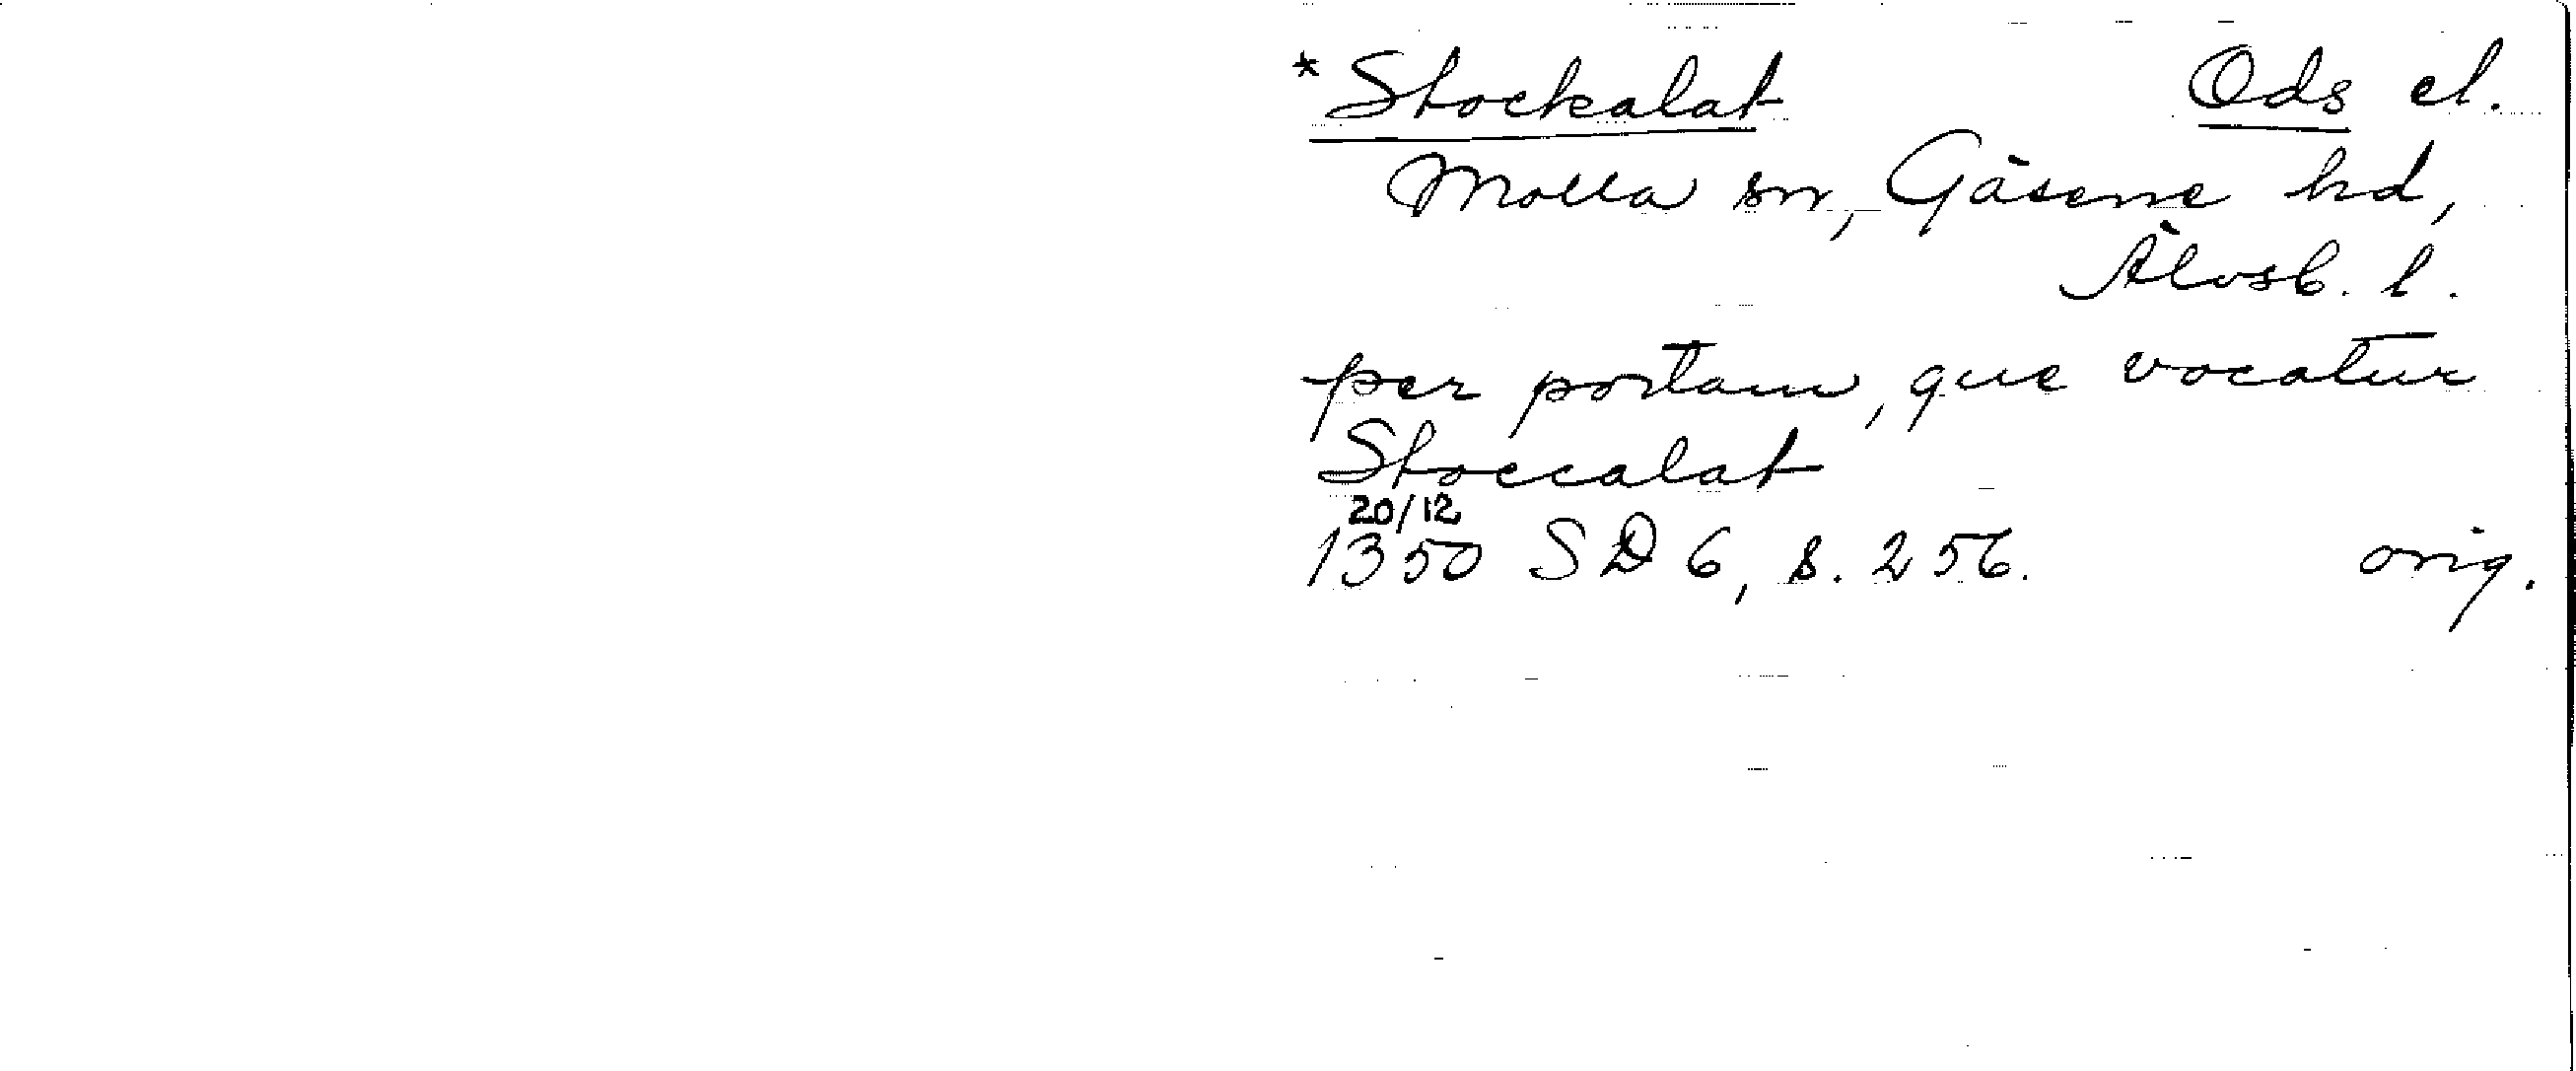 *Stockalat Ods el.
Molla sn, Gäsene hd,
Älvsb. l.
per portam, que vocatur
Stoccalat
20/12
1350 SD 6, s. 256. orig.